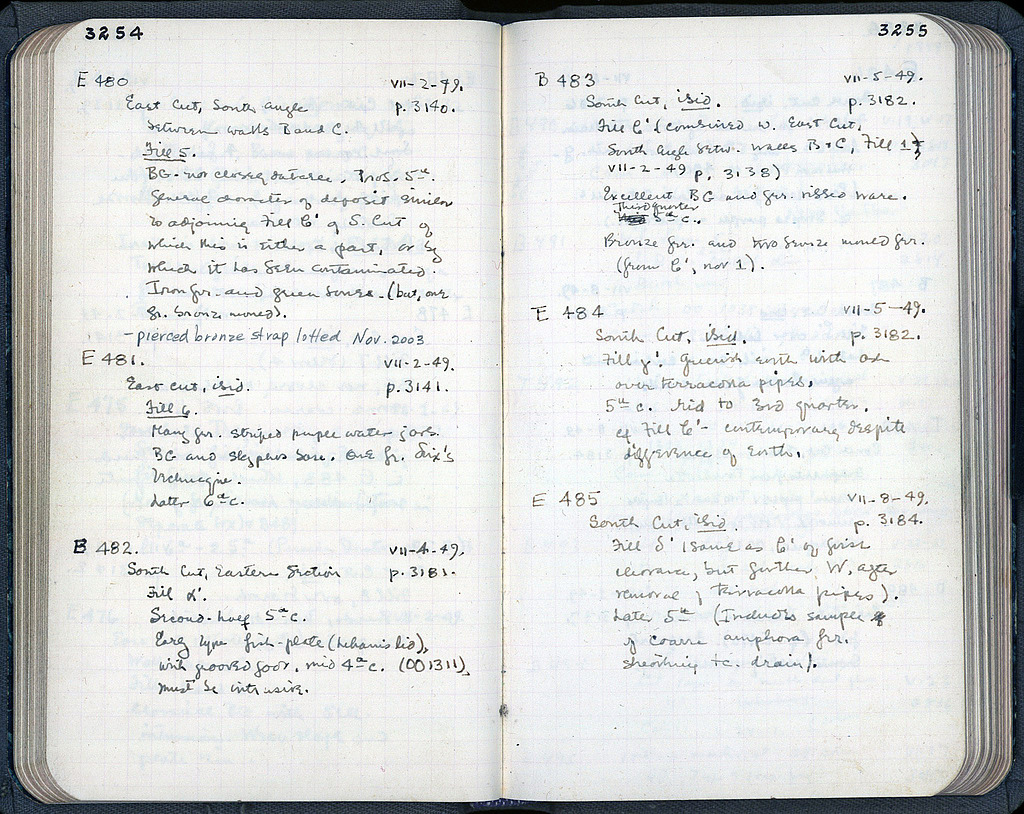 3254
E 480 VII-2-49.
East Cut, South angle p. 3140.
between walls B and C.
Fill 5.
BG - not closely dateable. Prob. 5th.
General character of deposit similar
to adjoining Fill β' of S. Cut of
which this is either a part, or by
which it has been contaminated.
Iron fr. and green bones. (but, one
fr. bronze moned).
- pierced bronze strap lotted Nov. 2003
E 481. VII-2-49.
East Cut, ibid. p. 3141.
Fill 6.
Many fr. striped purple water jars.
BG and skyphos base. One fr. Six's
technique.
Later 6th c.
B 482. VII-4-49.
South Cut, Eastern Section p. 3181.
Fill α'.
Second half 5th c.
Early type fish-plate (lekanis lid),
with grooved foot, mid 4th c. (OO 1311),
must be intrusive.
3255
B 483 VII-5-49.
South Cut, ibid. p. 3182.
Fill β' (combined w. East Cut,
South Angle betw. walls B + C, Fill 1
VII-2-49 p. 3138)
Excellent BG and fr. ribbed ware.
Third quarter
5th c.
Bronze fr. and two bronze moned fr.
(from β', not 1).
E 484 VII-5-49.
South Cut, ibid. p. 3182.
Fill γ' Greenish earth with ash
over terracotta pipes.
5th c. Mid to 3rd quarter.
cf Fill β' - contemporary despite
difference of earth.
E 485 VII-8-49.
South Cut, ibid. p. 3184.
Fill δ' (same as β' of first
clearance, but further W, after
removal of terracotta pipes).
Later 5th (Includes sample
of coarse amphora fr.
sheathing t.c. drain).